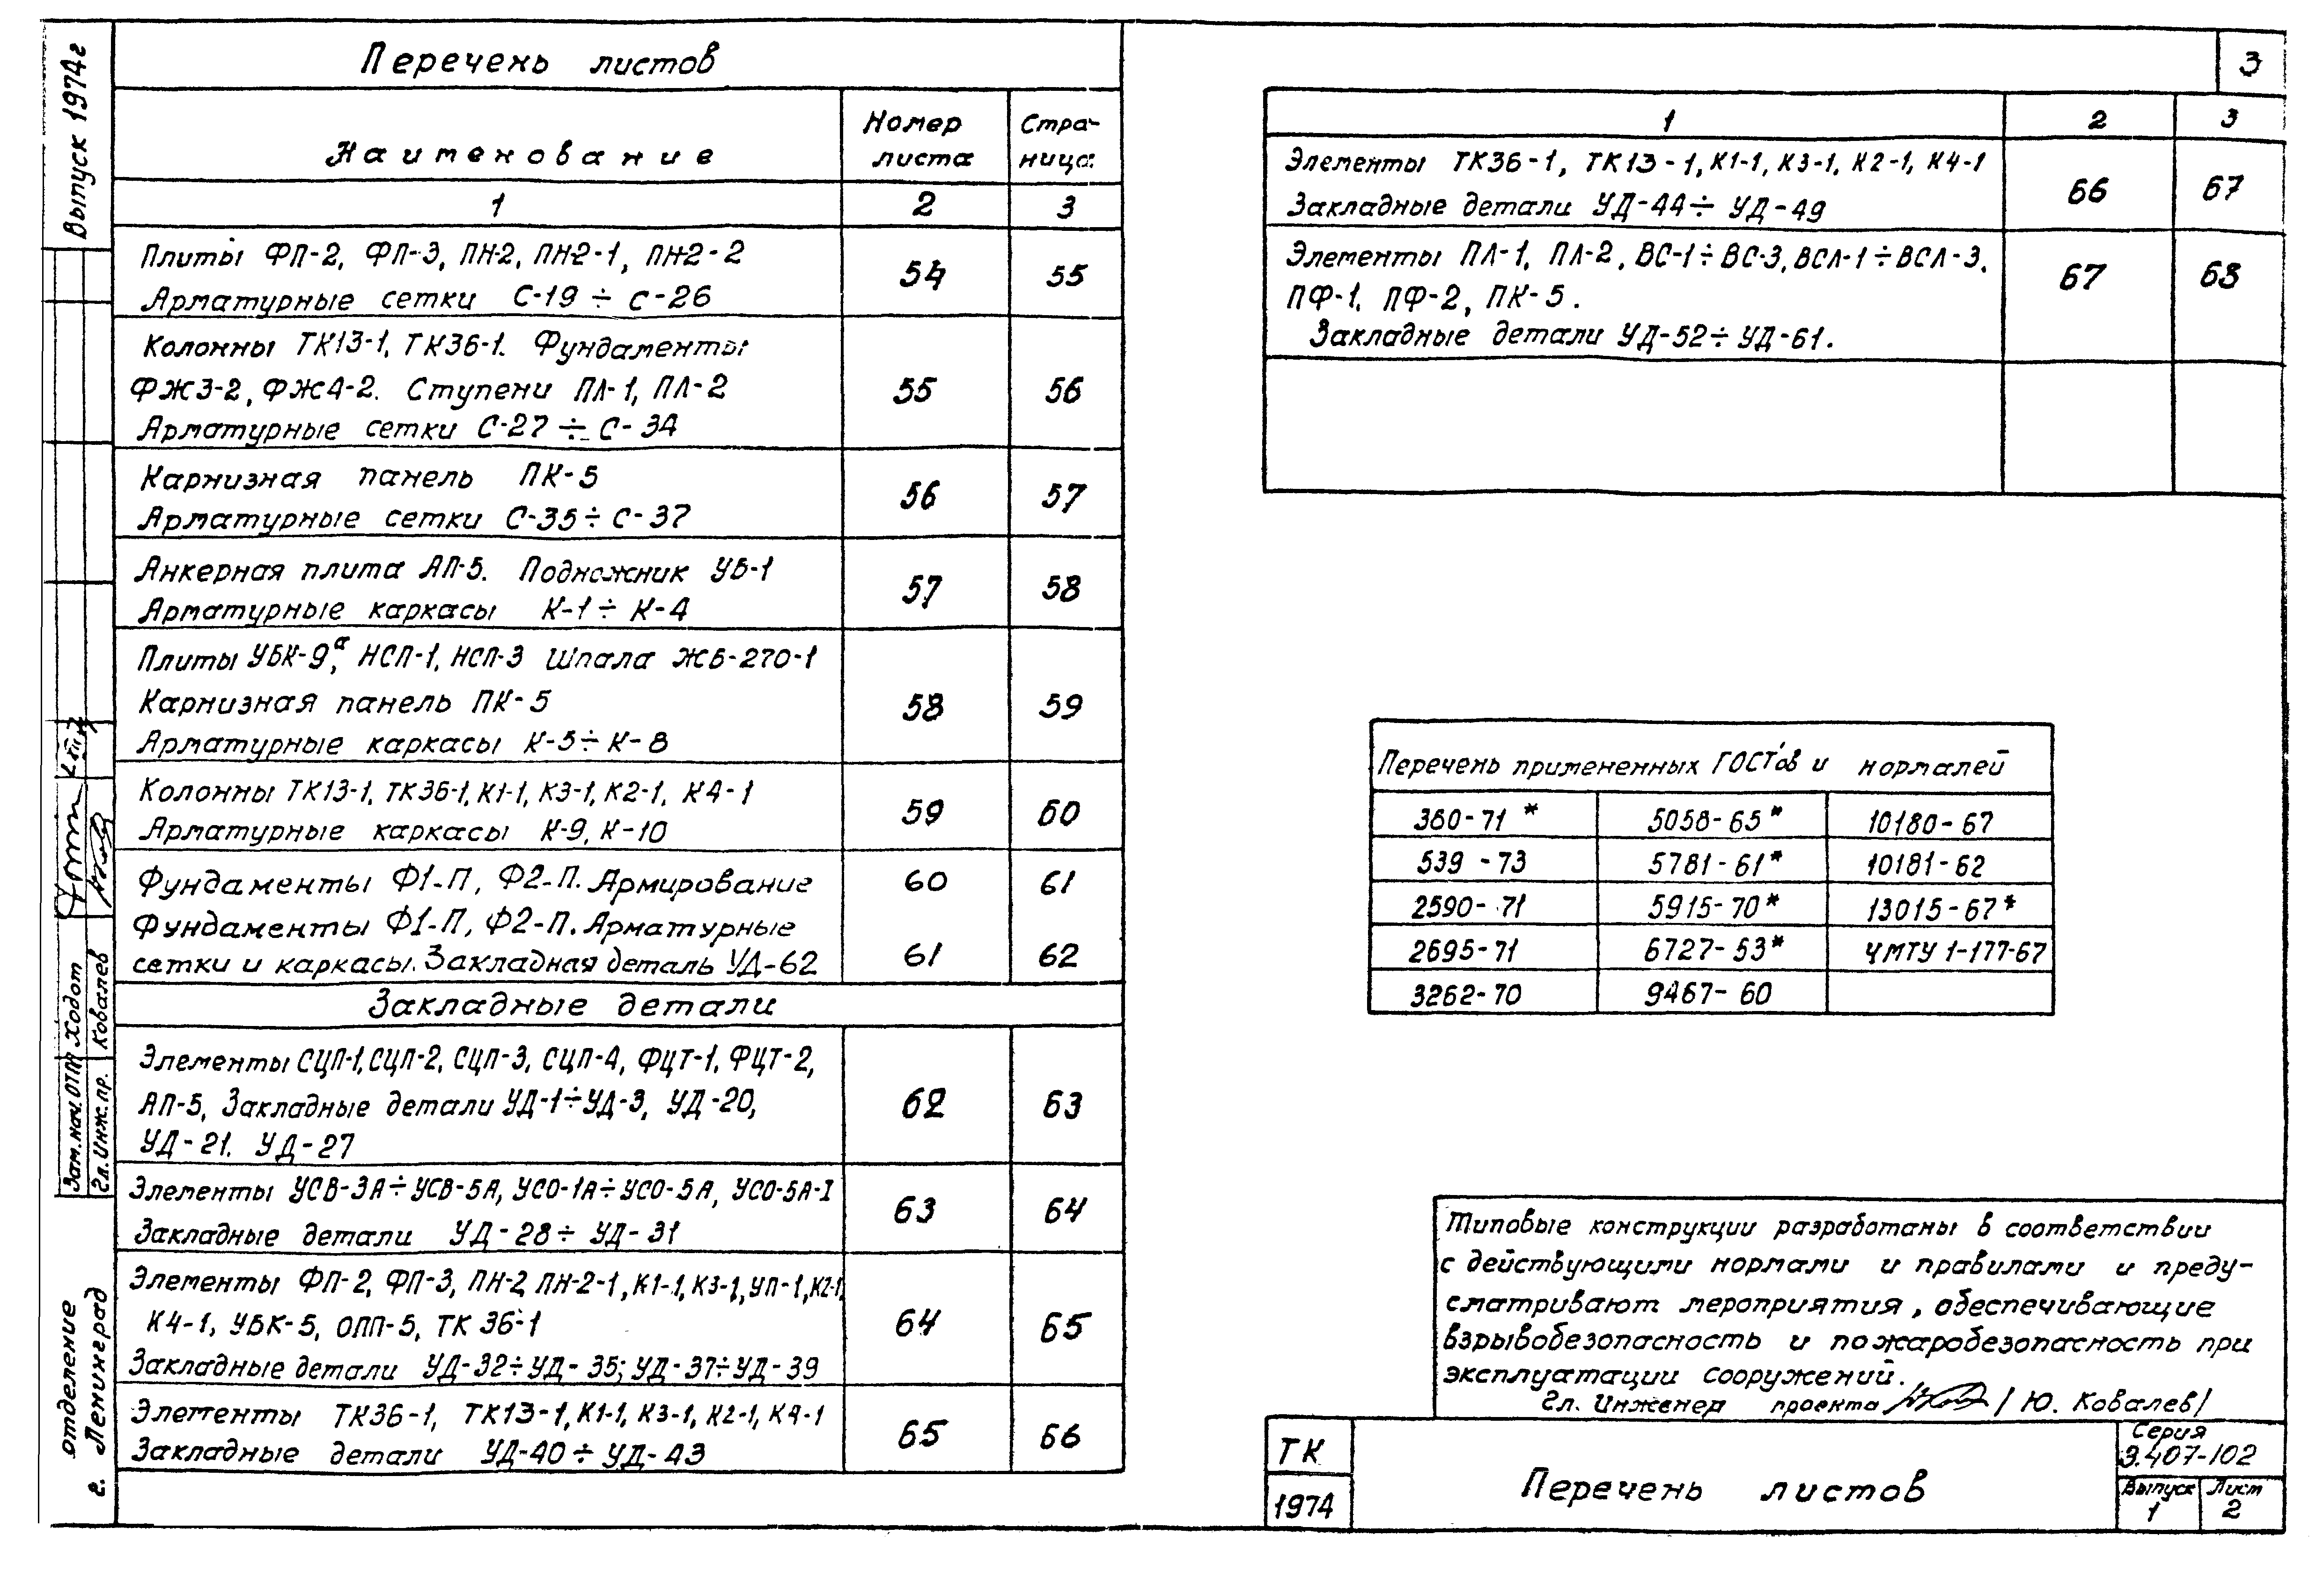 Перечень листов
Наименование
Номер листа
Страница
1 2 3
Плиты ФП-2, ФП-3, ПН-2, ПН-2-1, ПН-2-2
Арматурные сетки С-19 ÷ С-26
54 55
Колонны ТК13-1, ТК36-1. Фундаменты
ФЖ3-2, ФЖ4-2. Ступени ПЛ-1, ПЛ-2
Арматурные сетки С-27 ÷ С-34
55 56
Карнизная панель ПК-5
Арматурные сетки С-35 ÷ С-37
56 57
Анкерная плита АП-5. Подножник УБ-1
Арматурные каркасы К-1 ÷ К-4
57 58
Плиты УБК-9а, НСП-1, НСП-3 Шпала ЖБ-270-1
Карнизная панель ПК-5
Арматурные каркасы К-5 ÷ К-8
58 59
Колонны ТК13-1, ТК36-1, К1-1, К3-1, К2-1, К4-1
Арматурные каркасы К-9, К-10
59 60
Фундаменты Ф1-П, Ф2-П. Армирование 60 61
Фундаменты Ф1-П, Ф2-П. Арматурные
сетки и каркасы. Закладная деталь УД-62 61 62
Закладные детали
Элементы СЦП-1, СЦП-2, СЦП-3, СЦП-4, ФЦТ-1, ФЦТ-2,
АП-5, Закладные детали УД-1 ÷ УД-3, УД-20,
УД-21. УД-27
62 63
Элементы УСВ-3А ÷ УСВ-5А, УСО-1А ÷ УСО-5А, УСО-5А-I
Закладные детали УД-28 ÷ УД-31
63 64
Элементы ФП-2, ФП-3, ПН-2, ПН-2-1, К1-1, К3-1, УП-1, К2-1,
К4-1, УБК-5, ОПП-5, ТК 36-1
Закладные детали УД-32 ÷ УД-35; УД-37 ÷ УД-39
64 65
Элементы ТК36-1, ТК13-1, К1-1, К3-1, К2-1, К4-1
Закладные детали УД-40 ÷ УД-43
65 66
Выпуск 1974г
Зам. нач. ОТП Ходот
Гл. Инж. пр. Ковалев
отделение
г. Ленинград
3
1 2 3
Элементы ТК36-1, ТК13-1, К1-1, К3-1, К2-1, К4-1
Закладные детали УД-44 ÷ УД-49
66 67
Элементы ПЛ-1, ПЛ-2, ВС-1 ÷ ВС-3, ВСЛ-1 ÷ ВСЛ-3,
ПФ-1, ПФ-2, ПК-5.
Закладные детали УД-52 ÷ УД-61.
67 68
Перечень примененных ГОСТ'ов и нормалей
380-71* 5058-65* 10180-67
539-73 5781-61* 10181-62
2590-71 5915-70* 13015-67*
2695-71 6727-53* ЧМТУ 1-177-67
3262-70 9467-60
Типовые конструкции разработаны в соответствии
с действующими нормами и правилами и преду-
сматривают мероприятия, обеспечивающие
взрывобезопасность и пожаробезопасность при
эксплуатации сооружений.
Гл. Инженер проекта /Ю. Ковалев/
ТК
1974
Перечень листов
Серия
3.407-102
Выпуск 1
Лист 2